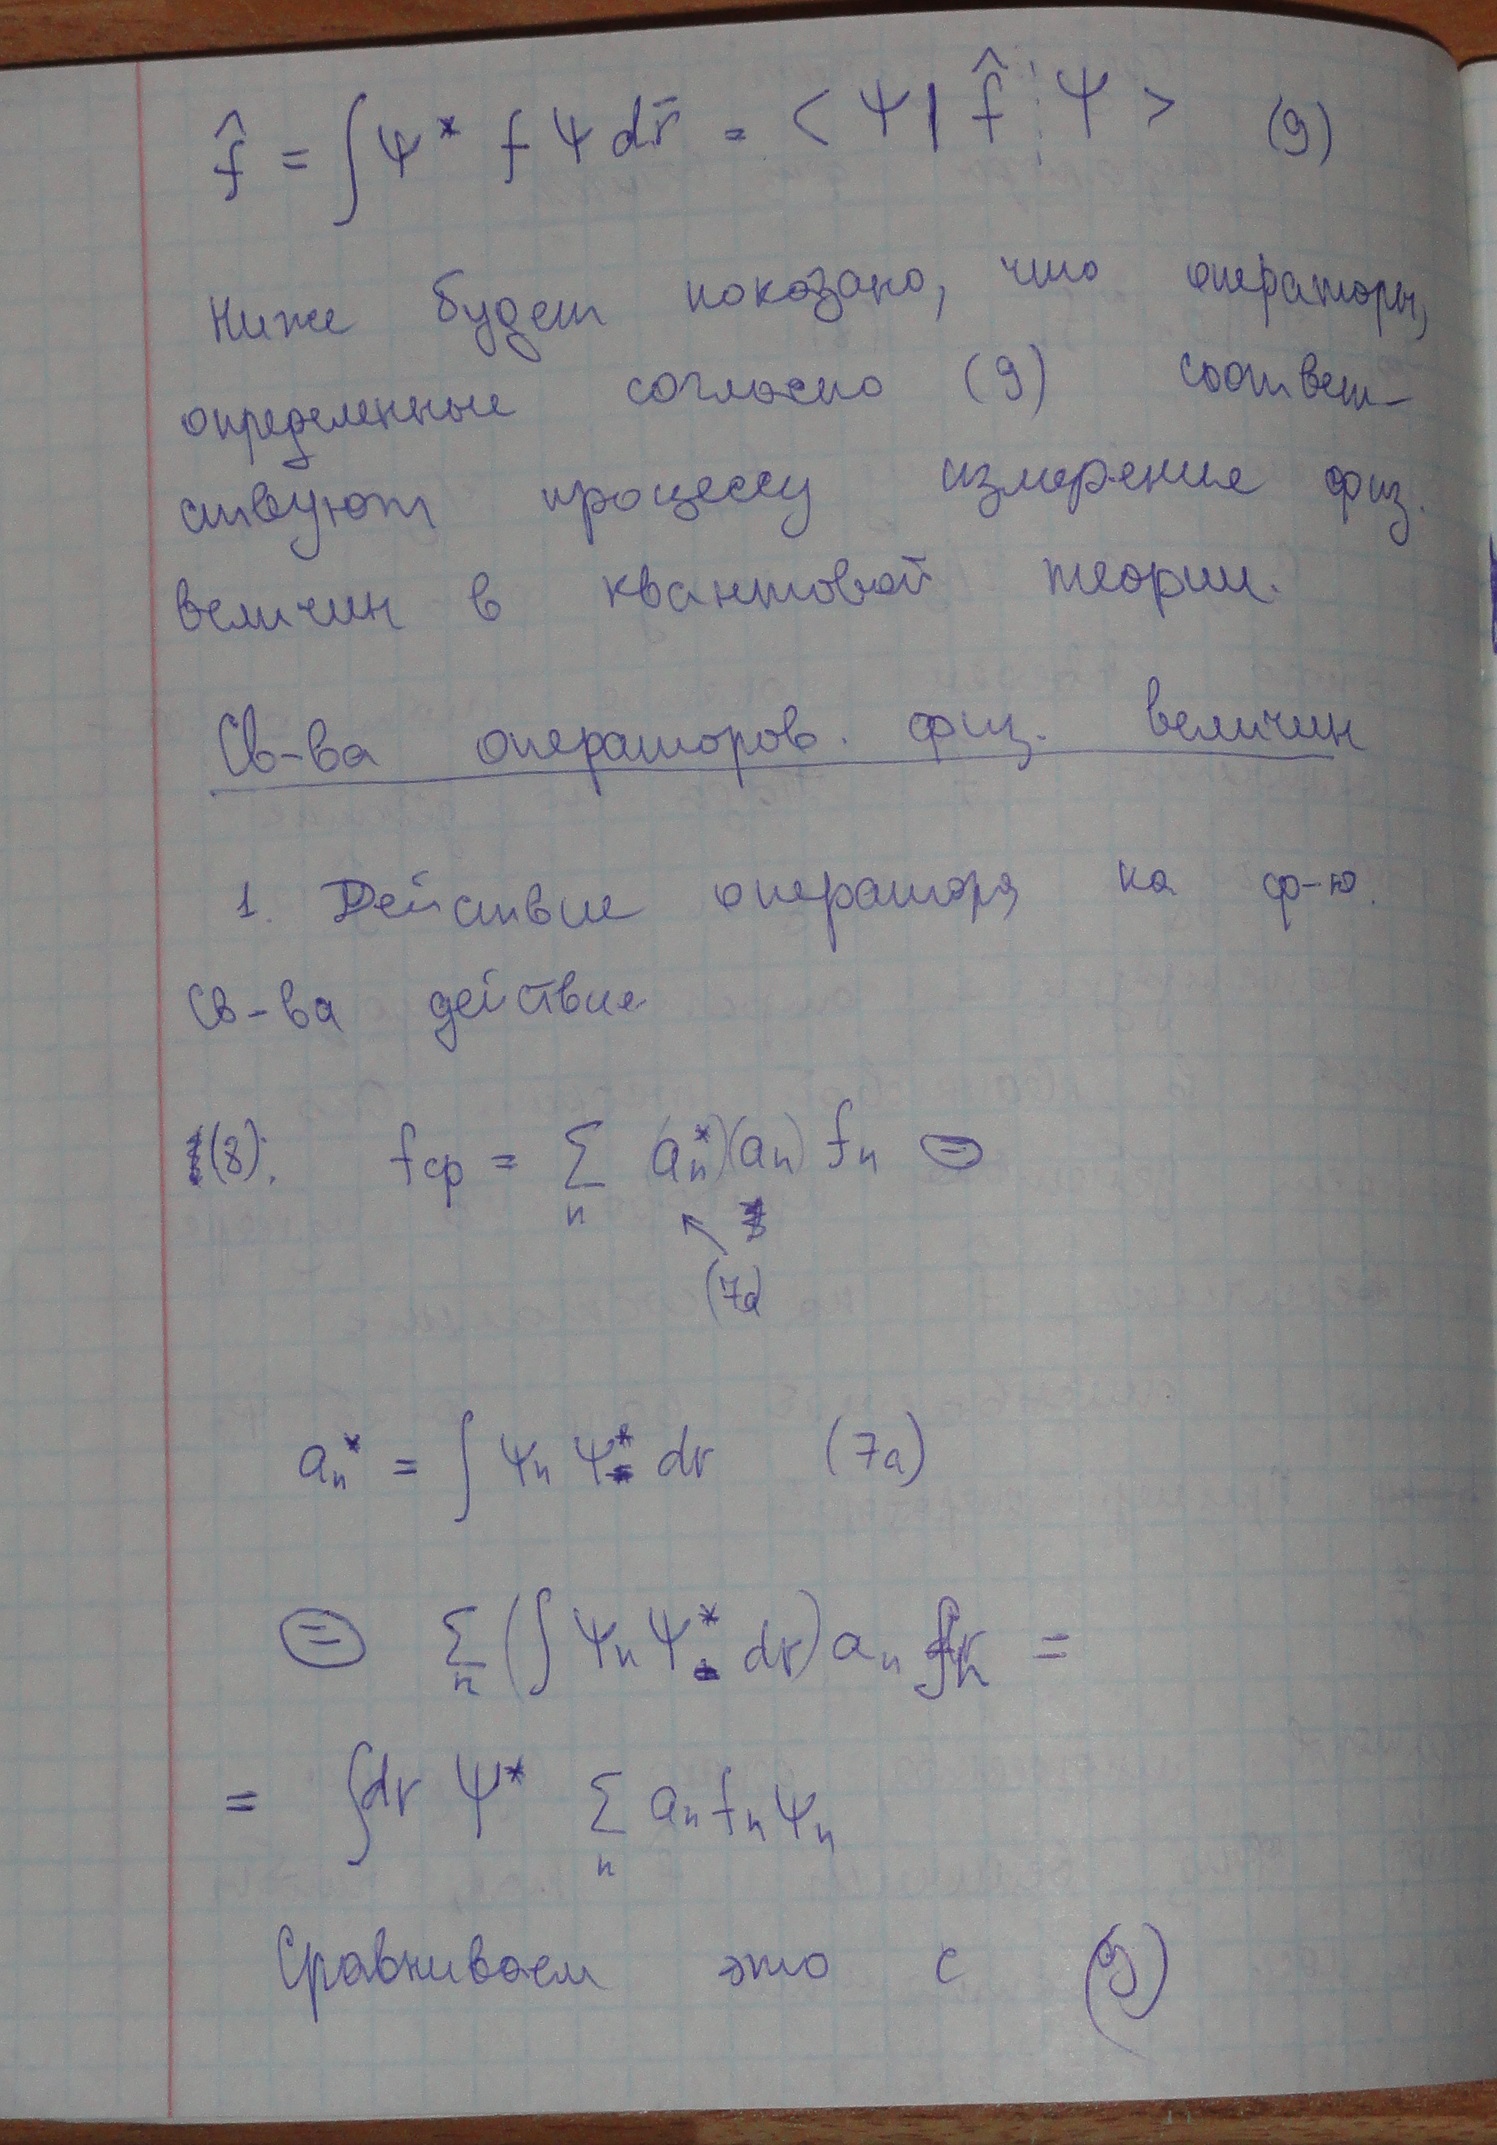 f̂ = ∫ Ψ* f Ψ dr̄ = < Ψ | f̂ | Ψ > (9)
Ниже будет показано, что операторы,
определенные согласно (9) соответ-
ствуют процессу измерения физ.
величин в квантовой теории.
Св-ва операторов. физ. величин
1. Действие оператора на ф-ю.
Св-ва действия
(8): fср = Σₙ (aₙ*)(aₙ) fₙ ⊜
(7a)
aₙ* = ∫ Ψₙ Ψ* dr (7a)
⊜ Σₙ (∫ Ψₙ Ψ* dr) aₙ fₙ =
= ∫ dr Ψ* Σₙ aₙ fₙ Ψₙ
Сравниваем это с (9)